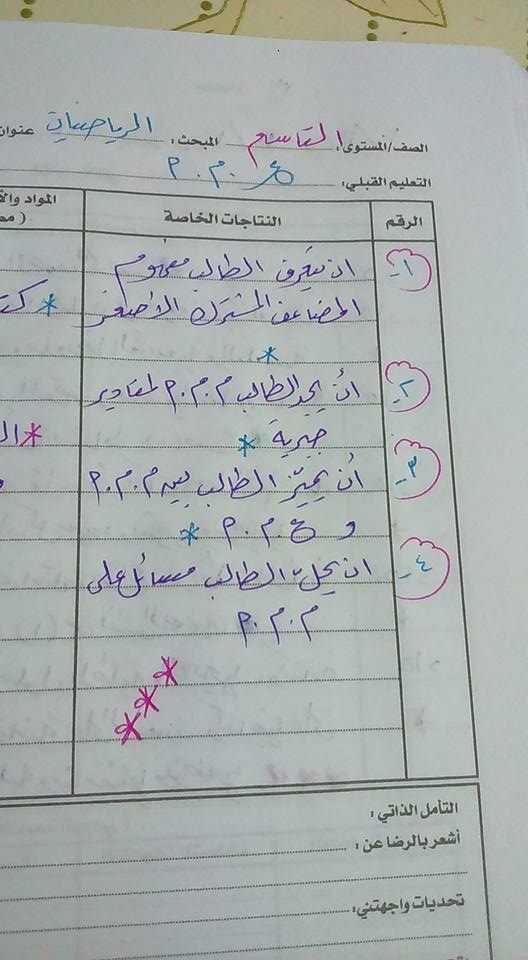 الصف/المستوى: التاسع المبحث: الرياضيات عنوان
التعليم القبلي: ع.م.م
الرقم النتاجات الخاصة المواد والأ
( مص
-١ ان يتعرف الطالب مفهوم
المضاعف المشترك الأصغر
* كت
*
-٢ أن يجد الطالب م.م.م لمقادير
جبرية *
* ال
-٣ أن يميّز الطالب بين م.م.م
و ع.م.م *
-٤ ان يحلّ الطالب مسائل على
م.م.م
*
*
*
التأمل الذاتي:
أشعر بالرضا عن:
تحديات واجهتني: